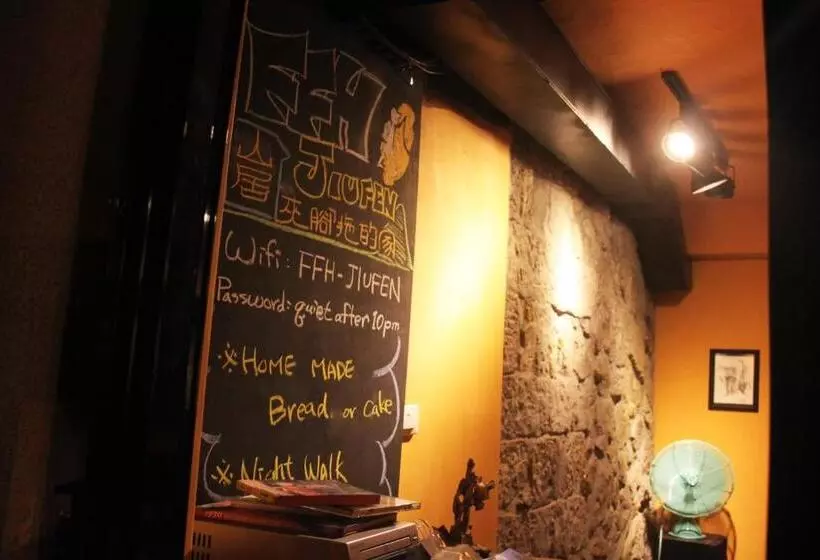 FFH
JIUFEN
山居
夾腳拖的家
Wifi: FFH-JIUFEN
Password: quiet after 10pm
※ HOME MADE
Bread or Cake
※ Night Walk